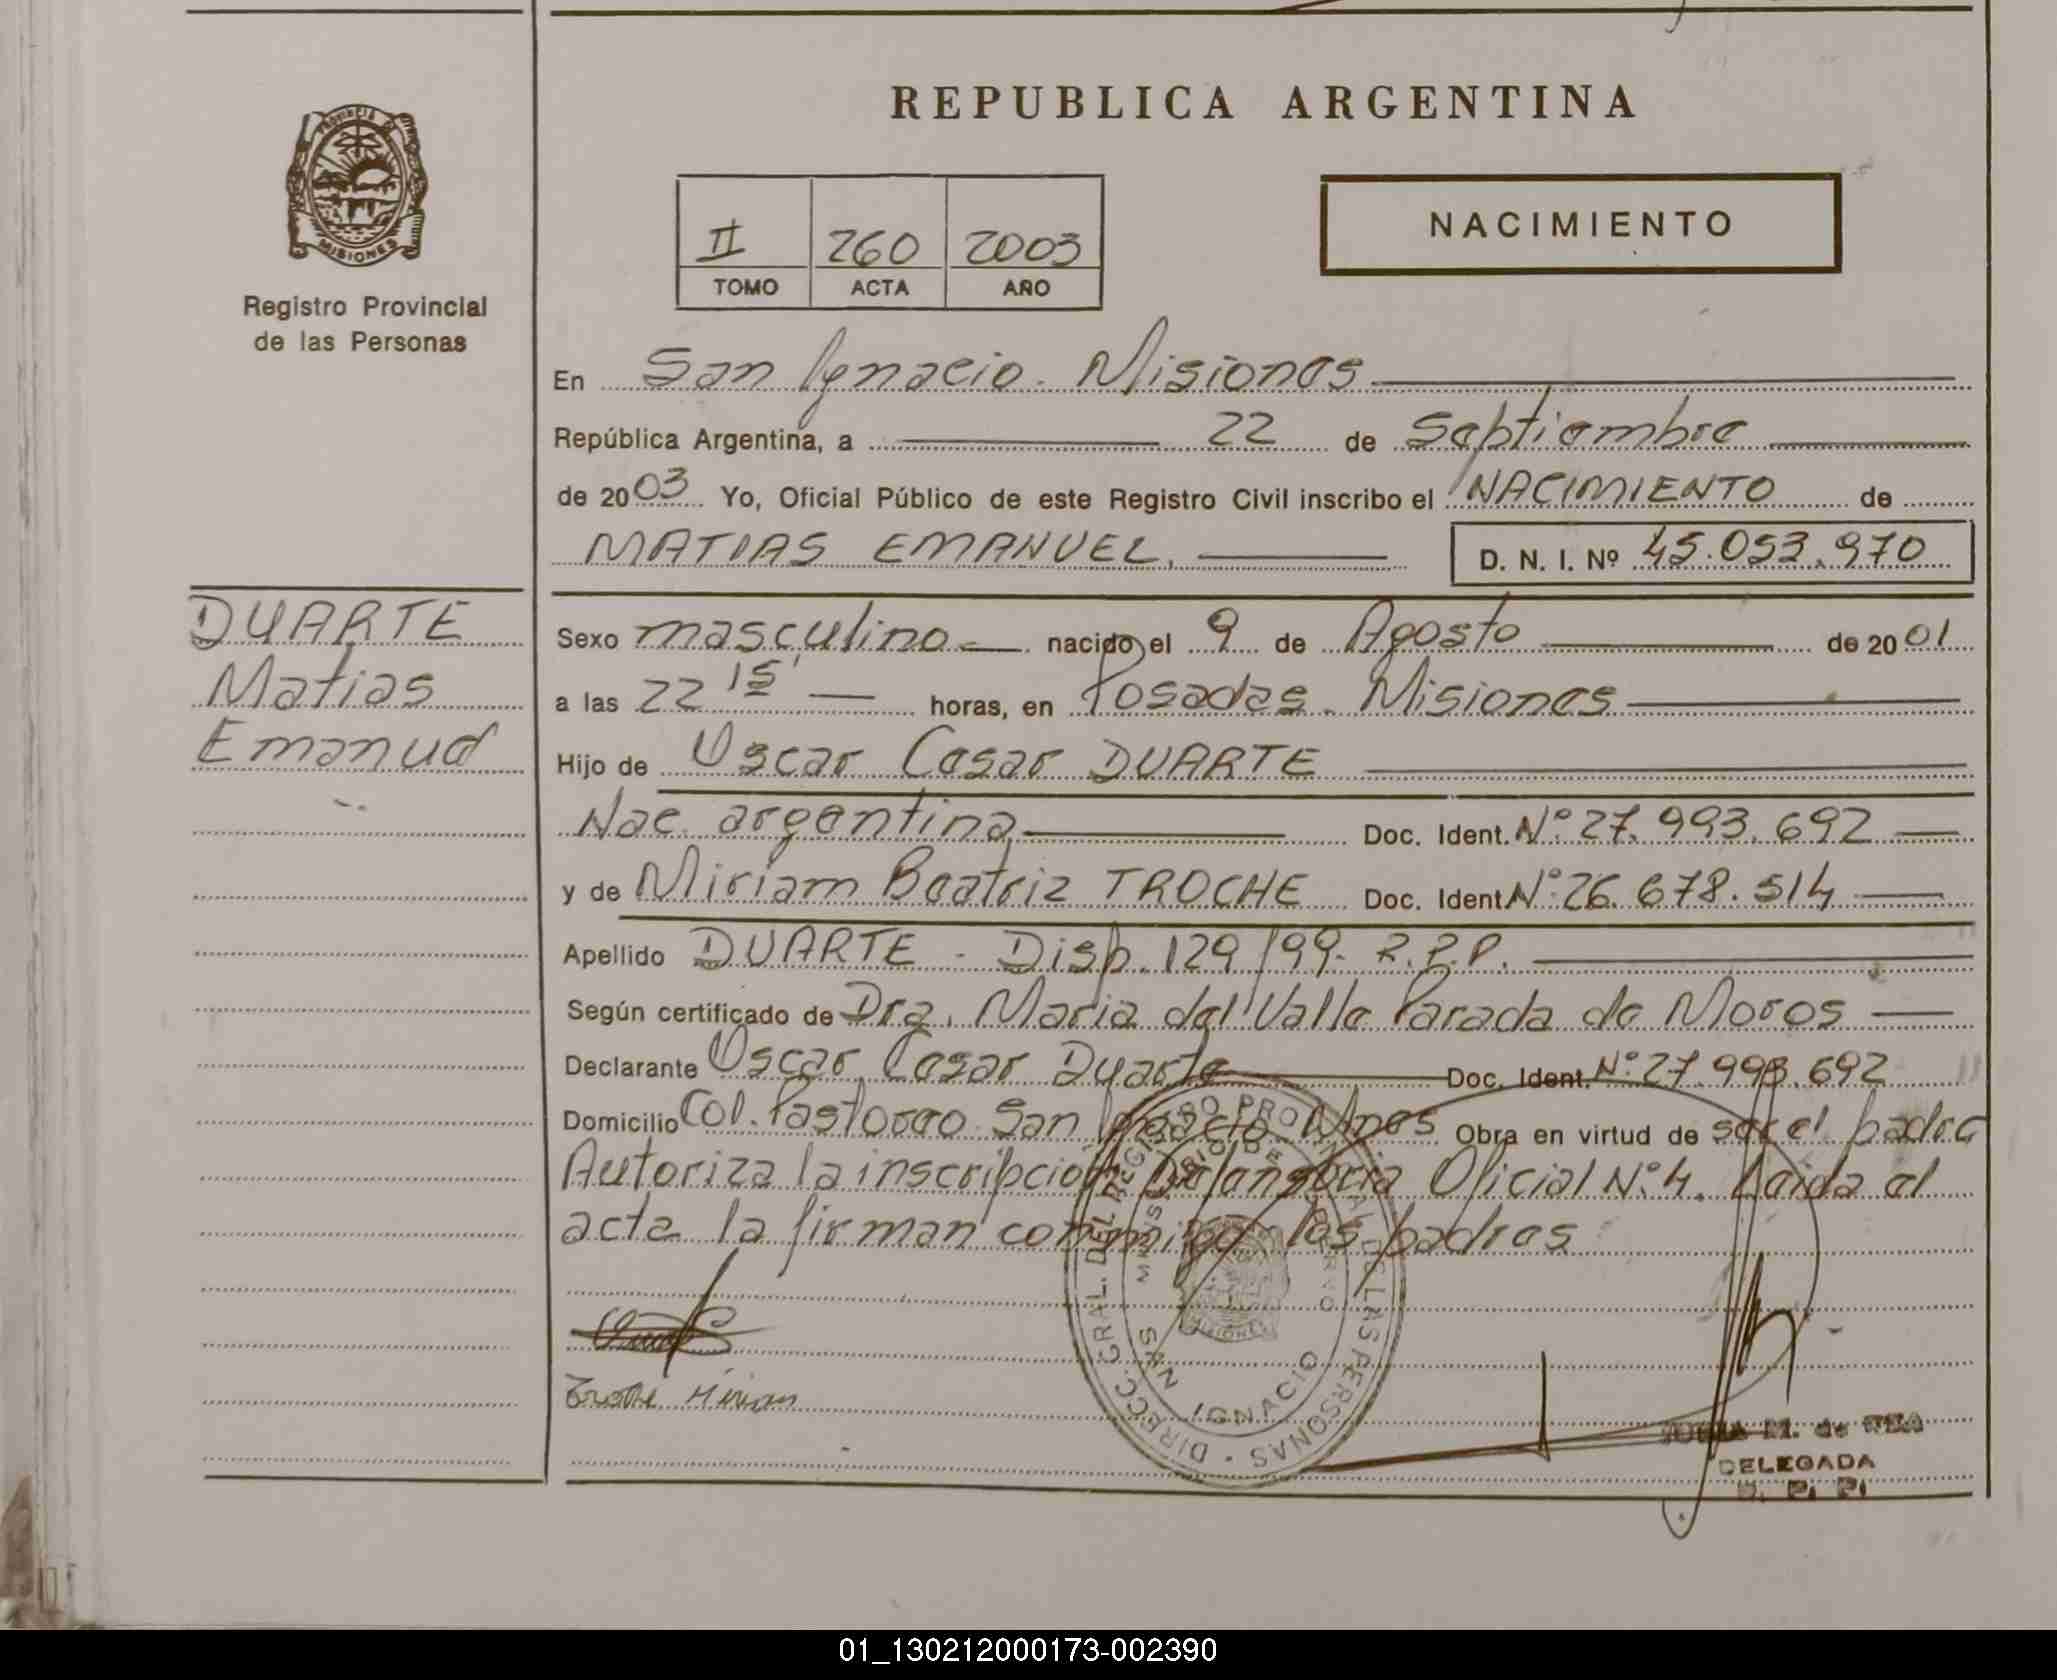 REPUBLICA ARGENTINA
PROVINCIA DE
MISIONES
Registro Provincial
de las Personas
II 260 2003
TOMO ACTA AÑO
NACIMIENTO
En San Ignacio. Misiones
República Argentina, a 22 de Septiembre
de 2003 Yo, Oficial Público de este Registro Civil inscribo el NACIMIENTO de
MATIAS EMANUEL. D. N. I. Nº 45.053.970
DUARTE
Matias
Emanuel
Sexo masculino nacido el 9 de Agosto de 2001
a las 22 15' horas, en Posadas. Misiones
Hijo de Oscar Cesar DUARTE
Nac. argentina Doc. Ident. Nº 27.993.692
y de Miriam Beatriz TROCHE Doc. Ident. Nº 26.678.514
Apellido DUARTE - Disp. 129/99. R.P.P.
Según certificado de Dra. Maria del Valle Parada de Moros
Declarante Oscar Cesar Duarte Doc. Ident. Nº 27.993.692
Domicilio Col. Pastoreo San Ignacio Mnes Obra en virtud de ser el padre
Autoriza la inscripción Delegada Oficial Nº 4. Leida el
acta la firman conmigo los padres
Troche Miriam
DIRECC. GRAL. DEL REGISTRO PROVINCIAL DE LAS PERSONAS
MINISTERIO DE GOBIERNO
MISIONES
SAN IGNACIO
M. de
DELEGADA
R. P. P.
01_130212000173-002390